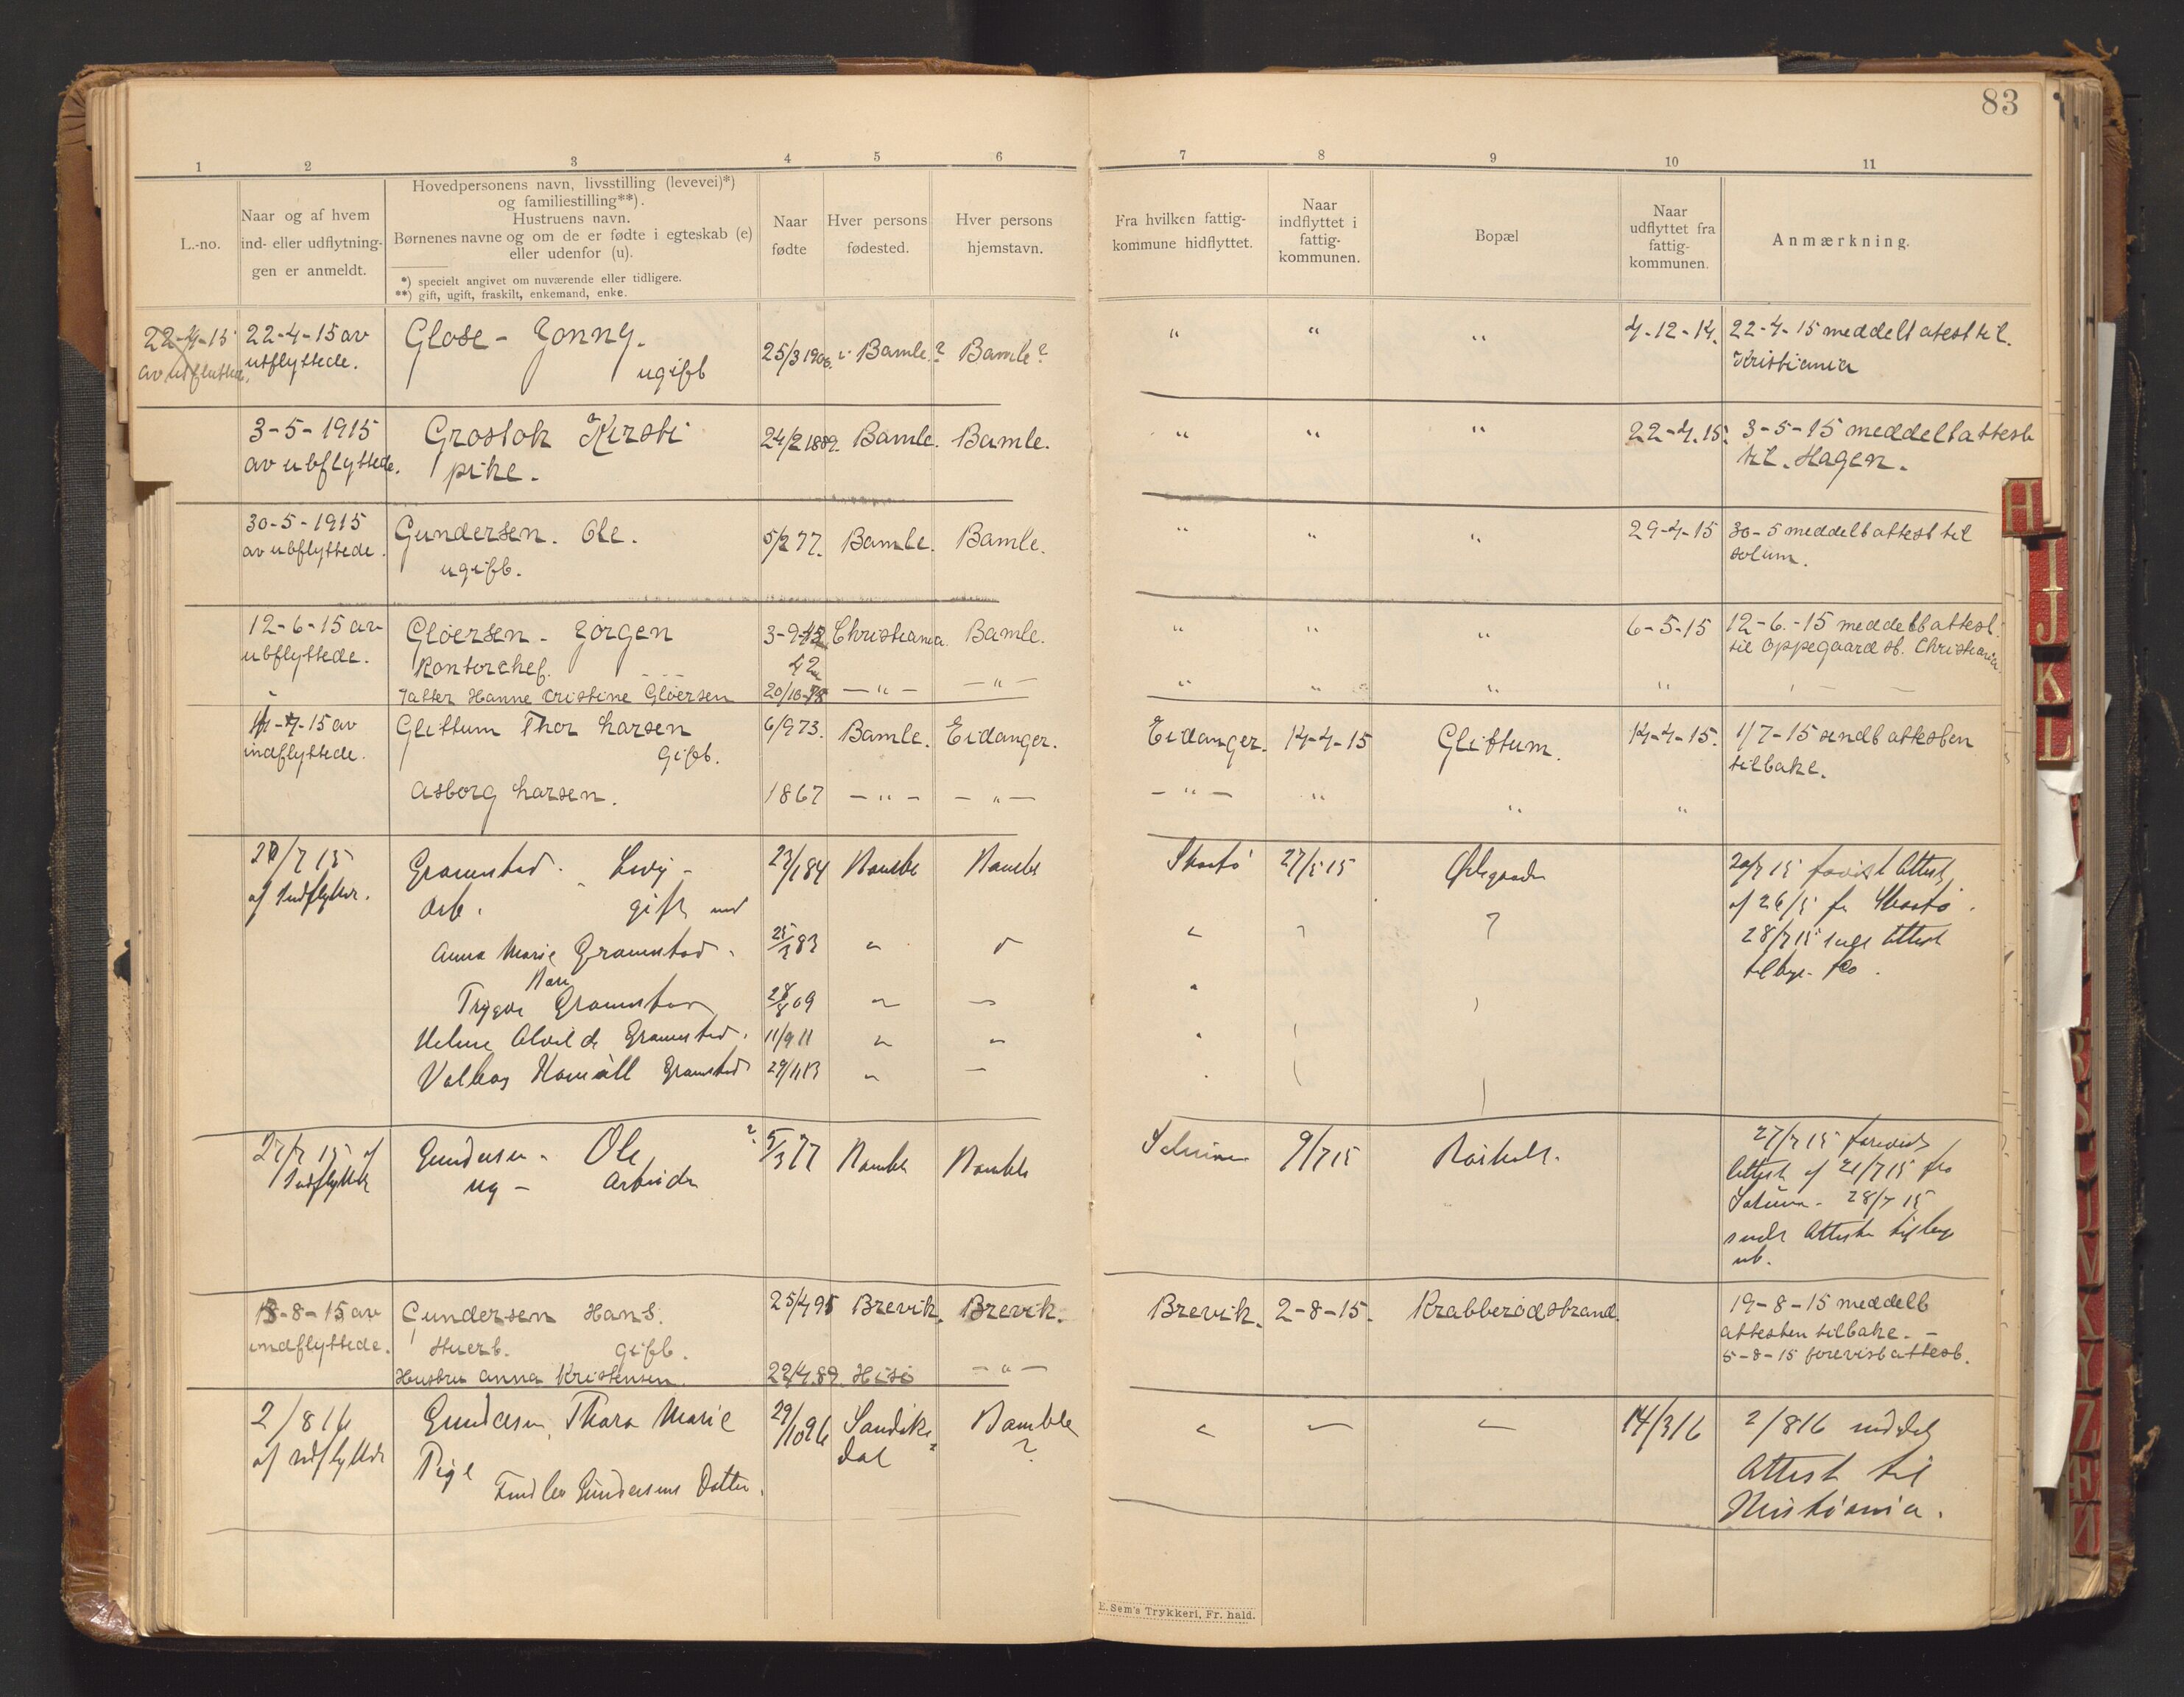 83
1 2 3 4 5 6 7 8 9 10 11
L.-no.
Naar og af hvem
ind- eller udflytnin-
gen er anmeldt.
Hovedpersonens navn, livsstilling (levevei)*)
og familiestilling**).
Hustruens navn.
Børnenes navne og om de er fødte i egteskab (e)
eller udenfor (u).
*) specielt angivet om nuværende eller tidligere.
**) gift, ugift, fraskilt, enkemand, enke.
Naar
fødte
Hver persons
fødested.
Hver persons
hjemstavn.
Fra hvilken fattig-
kommune hidflyttet.
Naar
indflyttet i
fattig-
kommunen.
Bopæl
Naar
udflyttet fra
fattig-
kommunen.
Anmærkning.
22-4-15 22-4-15 av Glose - Jonny. 25/3 1906. Bamle.? Bamle? " " " 4-12-14. 22-4-15 meddelt atest til.
utflyttede. ugift Kristiania
3-5-1915 Grostok Kirsti 24/2 1889. Bamle. Bamle. " " " 22-4.15. 3-5-15 meddelt attest
av utflyttede. pike. til. Hagen.
30-5-1915 Gundersen. Ole. 5/2 77. Bamle. Bamle. " " " 29-4-15 30-5 meddelt attest til
av utflyttede. ugift. solum.
12-6-15 av Gløersen - Jørgen 3-9- Christiania. Bamle. " " " 6-5-15 12-6.-15 meddelt attest.
utflyttede. Kontorchef. 42 til Oppegaard st. Christiania
Datter Hanne Cristine Gløersen 20/10- — " — — " — " " " "
-15 av Glittum Thor Larsen 6/9 73. Bamle. Eidanger. Eidanger. 14-4-15 Glittum. 14-4-15. 1/7-15 sendt attesten
indflyttede. Gift. tilbake.
Asborg Larsen. 1867 — " — — " — — " — " " "
/7 15 Gramstad. 23/1 84 Bamble Bamble Skaatø 27/5 15 20/7 15 Attest
af Indflytter. Arb. gift med af 26/5 fr Skaatø.
Anna Marie Gramstad. 25/3 83 " 28/7 15 Attest
Trygve Gramstad 09
Helene Alvilde Gramstad. 11/9 11 " "
Gramstad 29/11 13 "
27/7 15 af Gundersen - Ole ? 5/3 77 Bamble Bamble Solum 9/7 15 Røsholt. 27/7 15 forevist
Indflytter ug - Arbeider Attest af 21/7 15 fra
Solum - 28/7 15
sendt Attesten tilbage
-8-15 av Gundersen Hans. 25/4 95 Brevik. Brevik. Brevik. 2-8-15. Krabberødstrand. 19-8-15 meddelt
indflyttede. Stuert. Gift. attesten tilbake. -
Hustru Anna Kristensen. 22/4.89. Hisø — " — 5-8-15 forevist attest.
2/8 16 Gundersen, Thora Marie 29/10 96 Sandøke- Bamble " — — 14/3 16 2/8 16 meddelt
af Udflytter Pige dal ? ? Attest til
Gundersens Datter. Kristiania.
E. Sem's Trykkeri, Fr. hald.
H
I
J
K
L